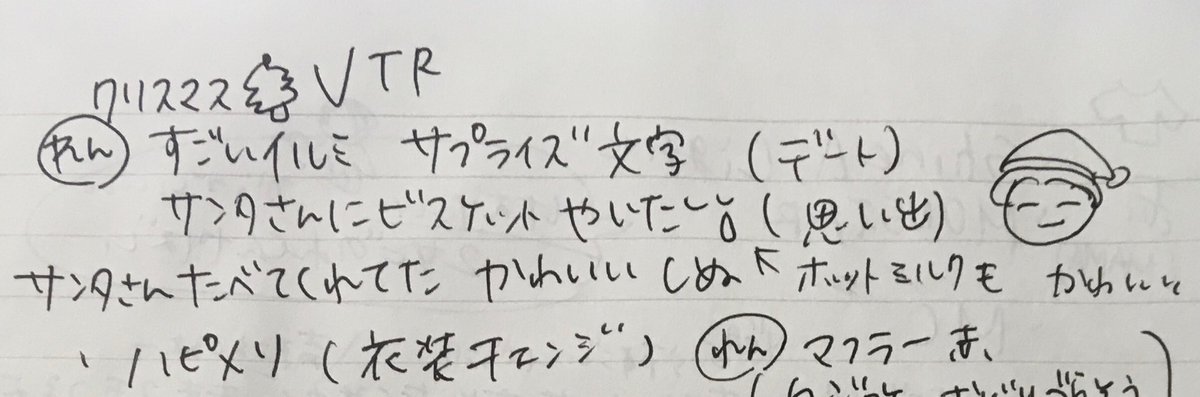 クリスマス VTR
れん すごいイルミ サプライズ文字 (デート)
サンタさんにビスケットやいたり。(思い出)
サンタさんたべてくれてた かわいいしぬ ↖ ホットミルクも かわいい
・ハピメリ (衣装チェンジ) れん マフラー赤、